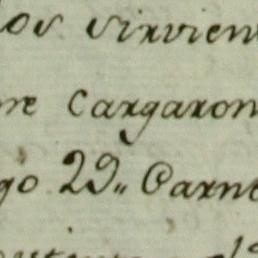 los sirvien
me Cargaron
go 29,, Carne